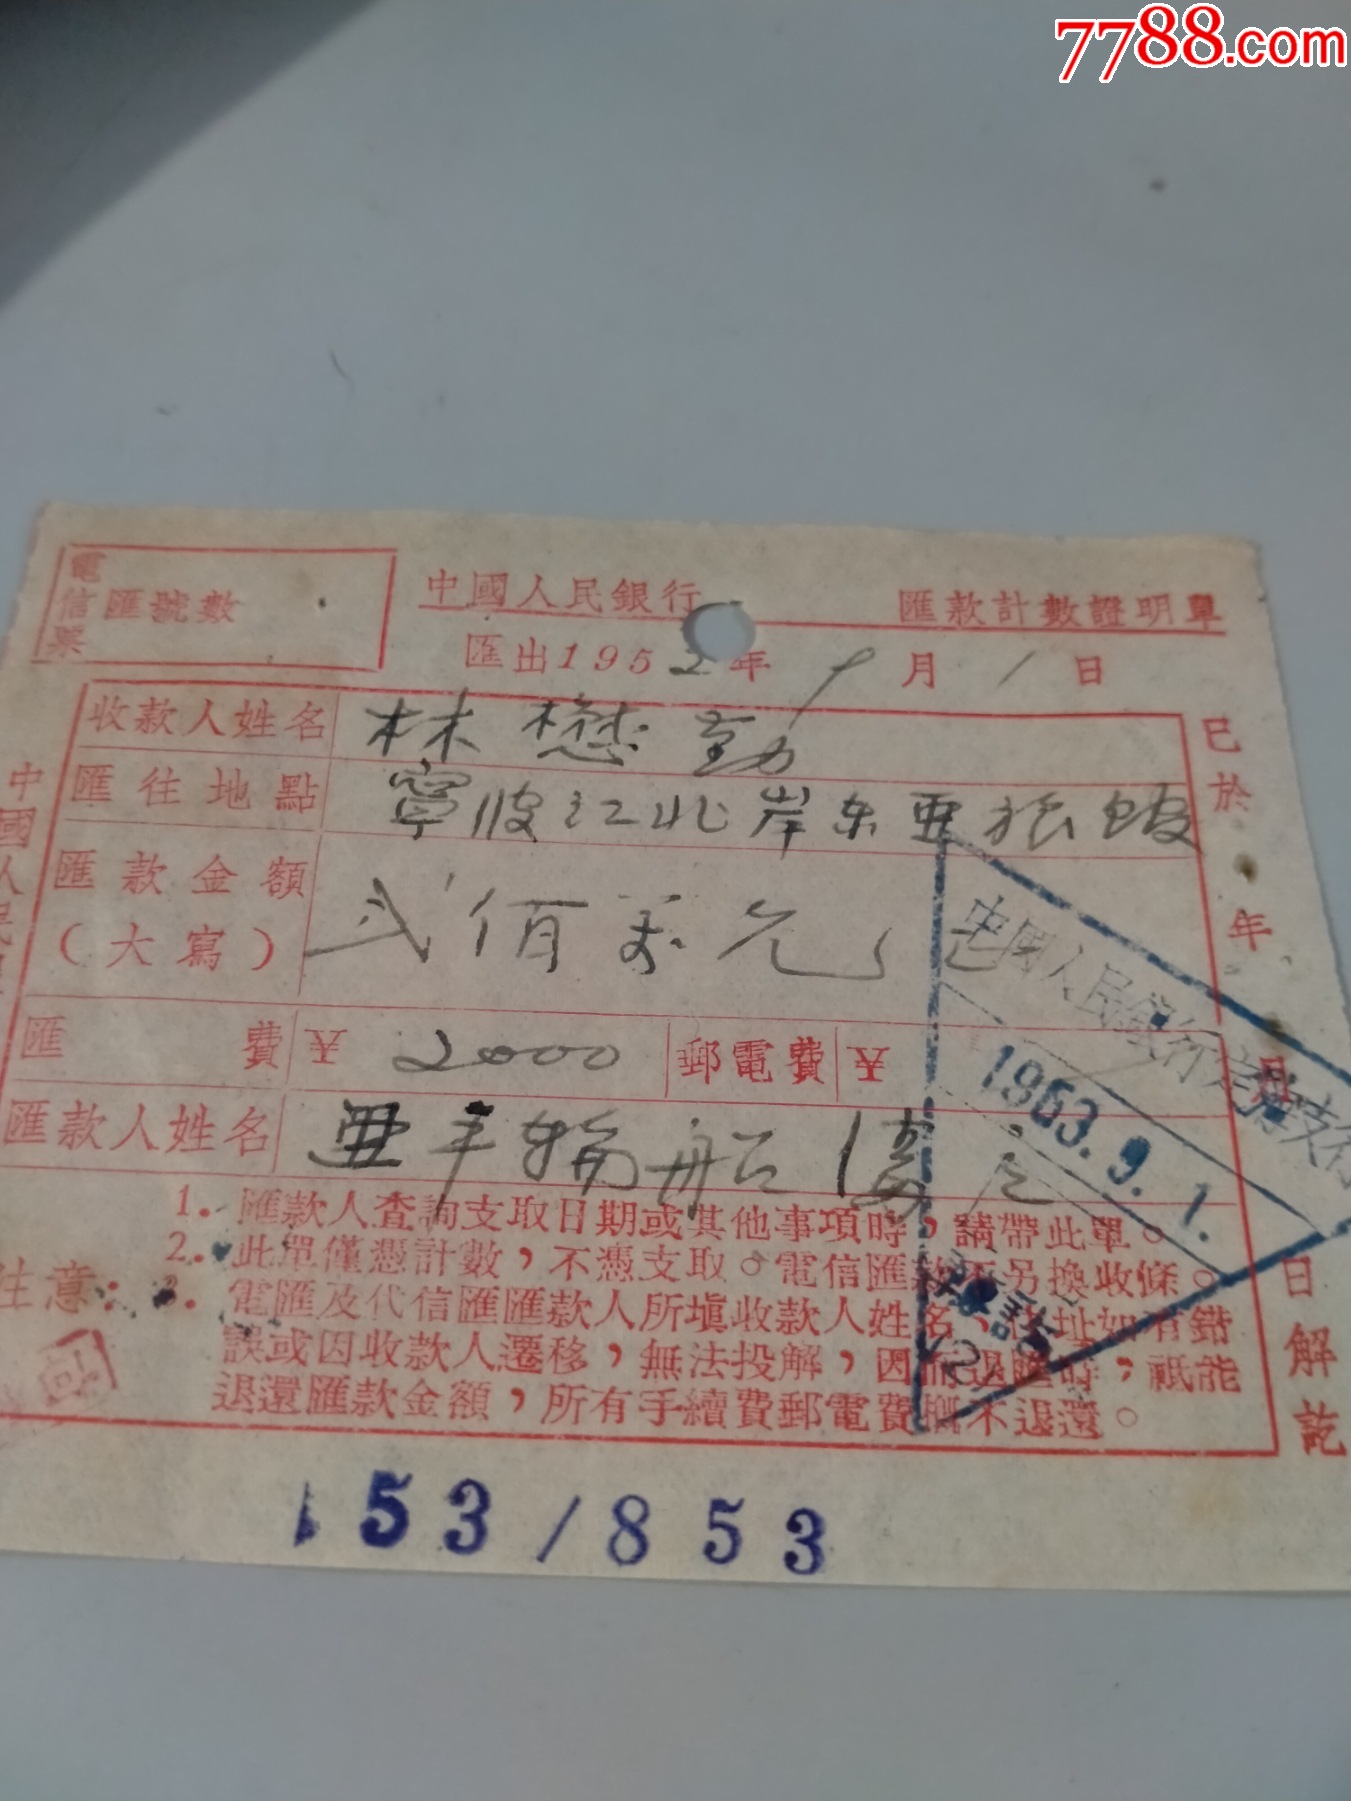 7788.com
電信票匯號數
中國人民銀行 匯款計數證明單
匯出1952年9月1日
收款人姓名 林懋勤
匯往地點 寧波江北岸東亞旅館
匯款金額(大寫) 弍佰萬元
匯費 ¥ 2000 郵電費 ¥
匯款人姓名 亜丰輪船
注意:
1. 匯款人查詢支取日期或其他事項時,請帶此單。
2. 此單僅憑計數,不憑支取。電信匯款不另換收條。
3. 電匯及代信匯匯款人所塡收款人姓名、住址如有錯
誤或因收款人遷移,無法投解,因而退匯時,祇能
退還匯款金額,所有手續費郵電費概不退還。
已於 年 月 日解訖
中國人民
中國人民銀行
1953.9.1.
53/853